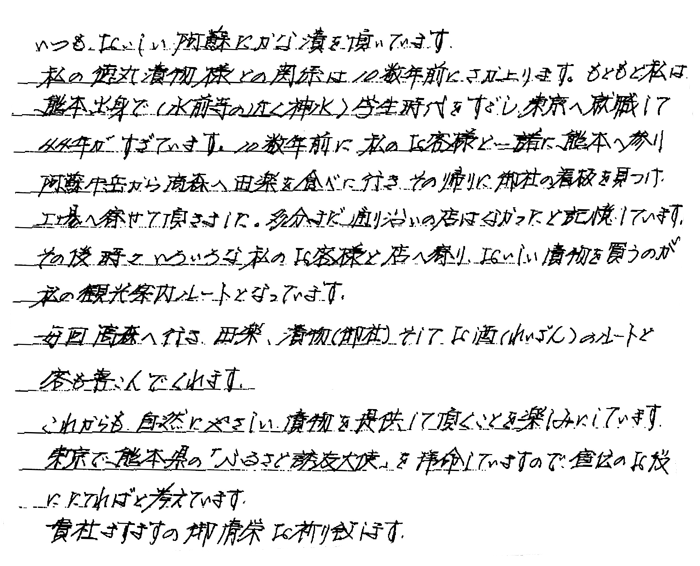 いつも、おいしい阿蘇たかな漬を頂いています。
私の徳丸漬物様との関係は10数年前にさか上ります。もともと私は
熊本出身で(水前寺の近く神水)学生時代をすごし、東京へ就職して
44年がすぎています。10数年前に私のお客様と一諸に熊本へ参り
阿蘇中岳から高森へ田楽を食べに行きその帰りに御社の看板を見つけ
工場へ寄せて頂きました。多分まだ通り沿いの店はなかったと記憶しています。
その後時々いろいろな私のお客様と店へ寄り、おいしい漬物を買うのが
私の観光案内ルートとなっています。
毎回高森へ行き、田楽、漬物(御社)そしてお酒(れいざん)のルートと
客も喜こんでくれます。
これからも自然にやさしい漬物を提供して頂くことを楽しみにしています。
東京で熊本県の「ふるさと誘友大使」を拝命していますので宣伝のお役
にたてればと考えています。
貴社ますますの御清栄お祈り致します。